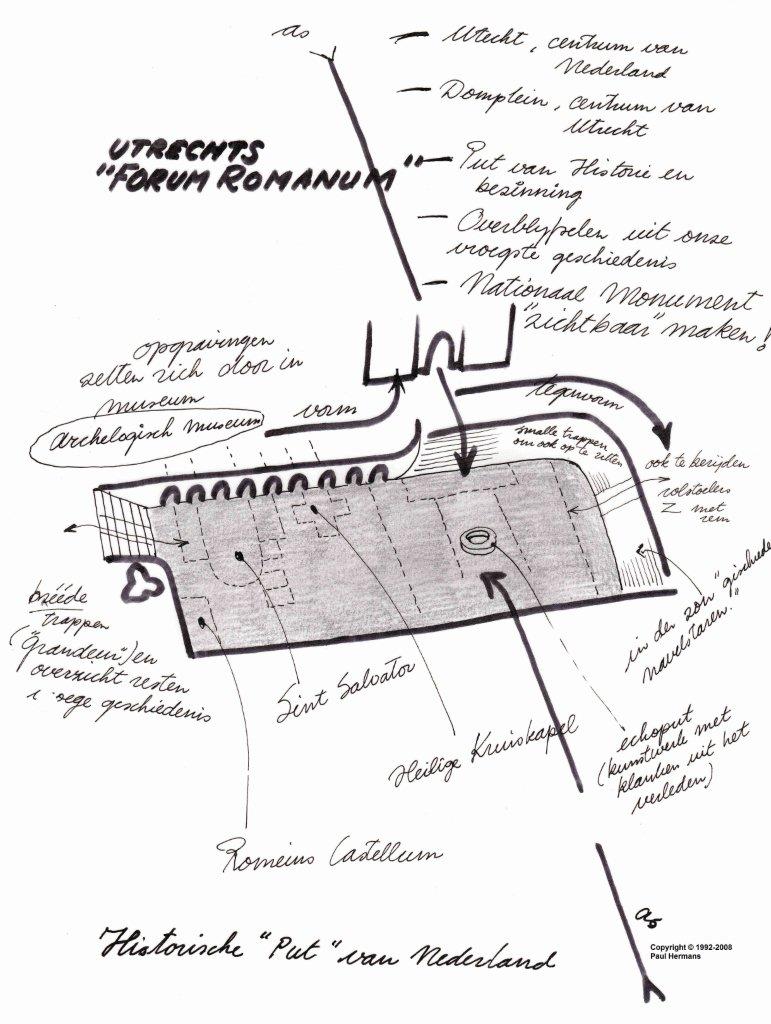 as
— Utecht, centrum van
Nederland
— Domplein, centrum van
Utecht
UTRECHTS
"FORUM ROMANUM"
— Put van Historie en
bezinning
— Overblyfselen uit onze
vroegste geschiedenis
— Nationaal Monument
"zichtbaar" maken!
opgravingen
zetten zich door in
museum
archelogisch museum
vorm
tegenvorm
smalle trappen
om ook op te zitten
ook te berijden
rolstoelers
Z met
rem
brééde
trappen
("grandeur") en
overzicht resten
geschiedenis
in der zon "geschiede
navelstaren."
Sint Salvator
Heilige Kruiskapel
echoput
(kunstwerk met
klanken uit het
verleden)
Romeins Castellum
as
Historische "Put" van Nederland
Copyright © 1992-2008
Paul Hermans